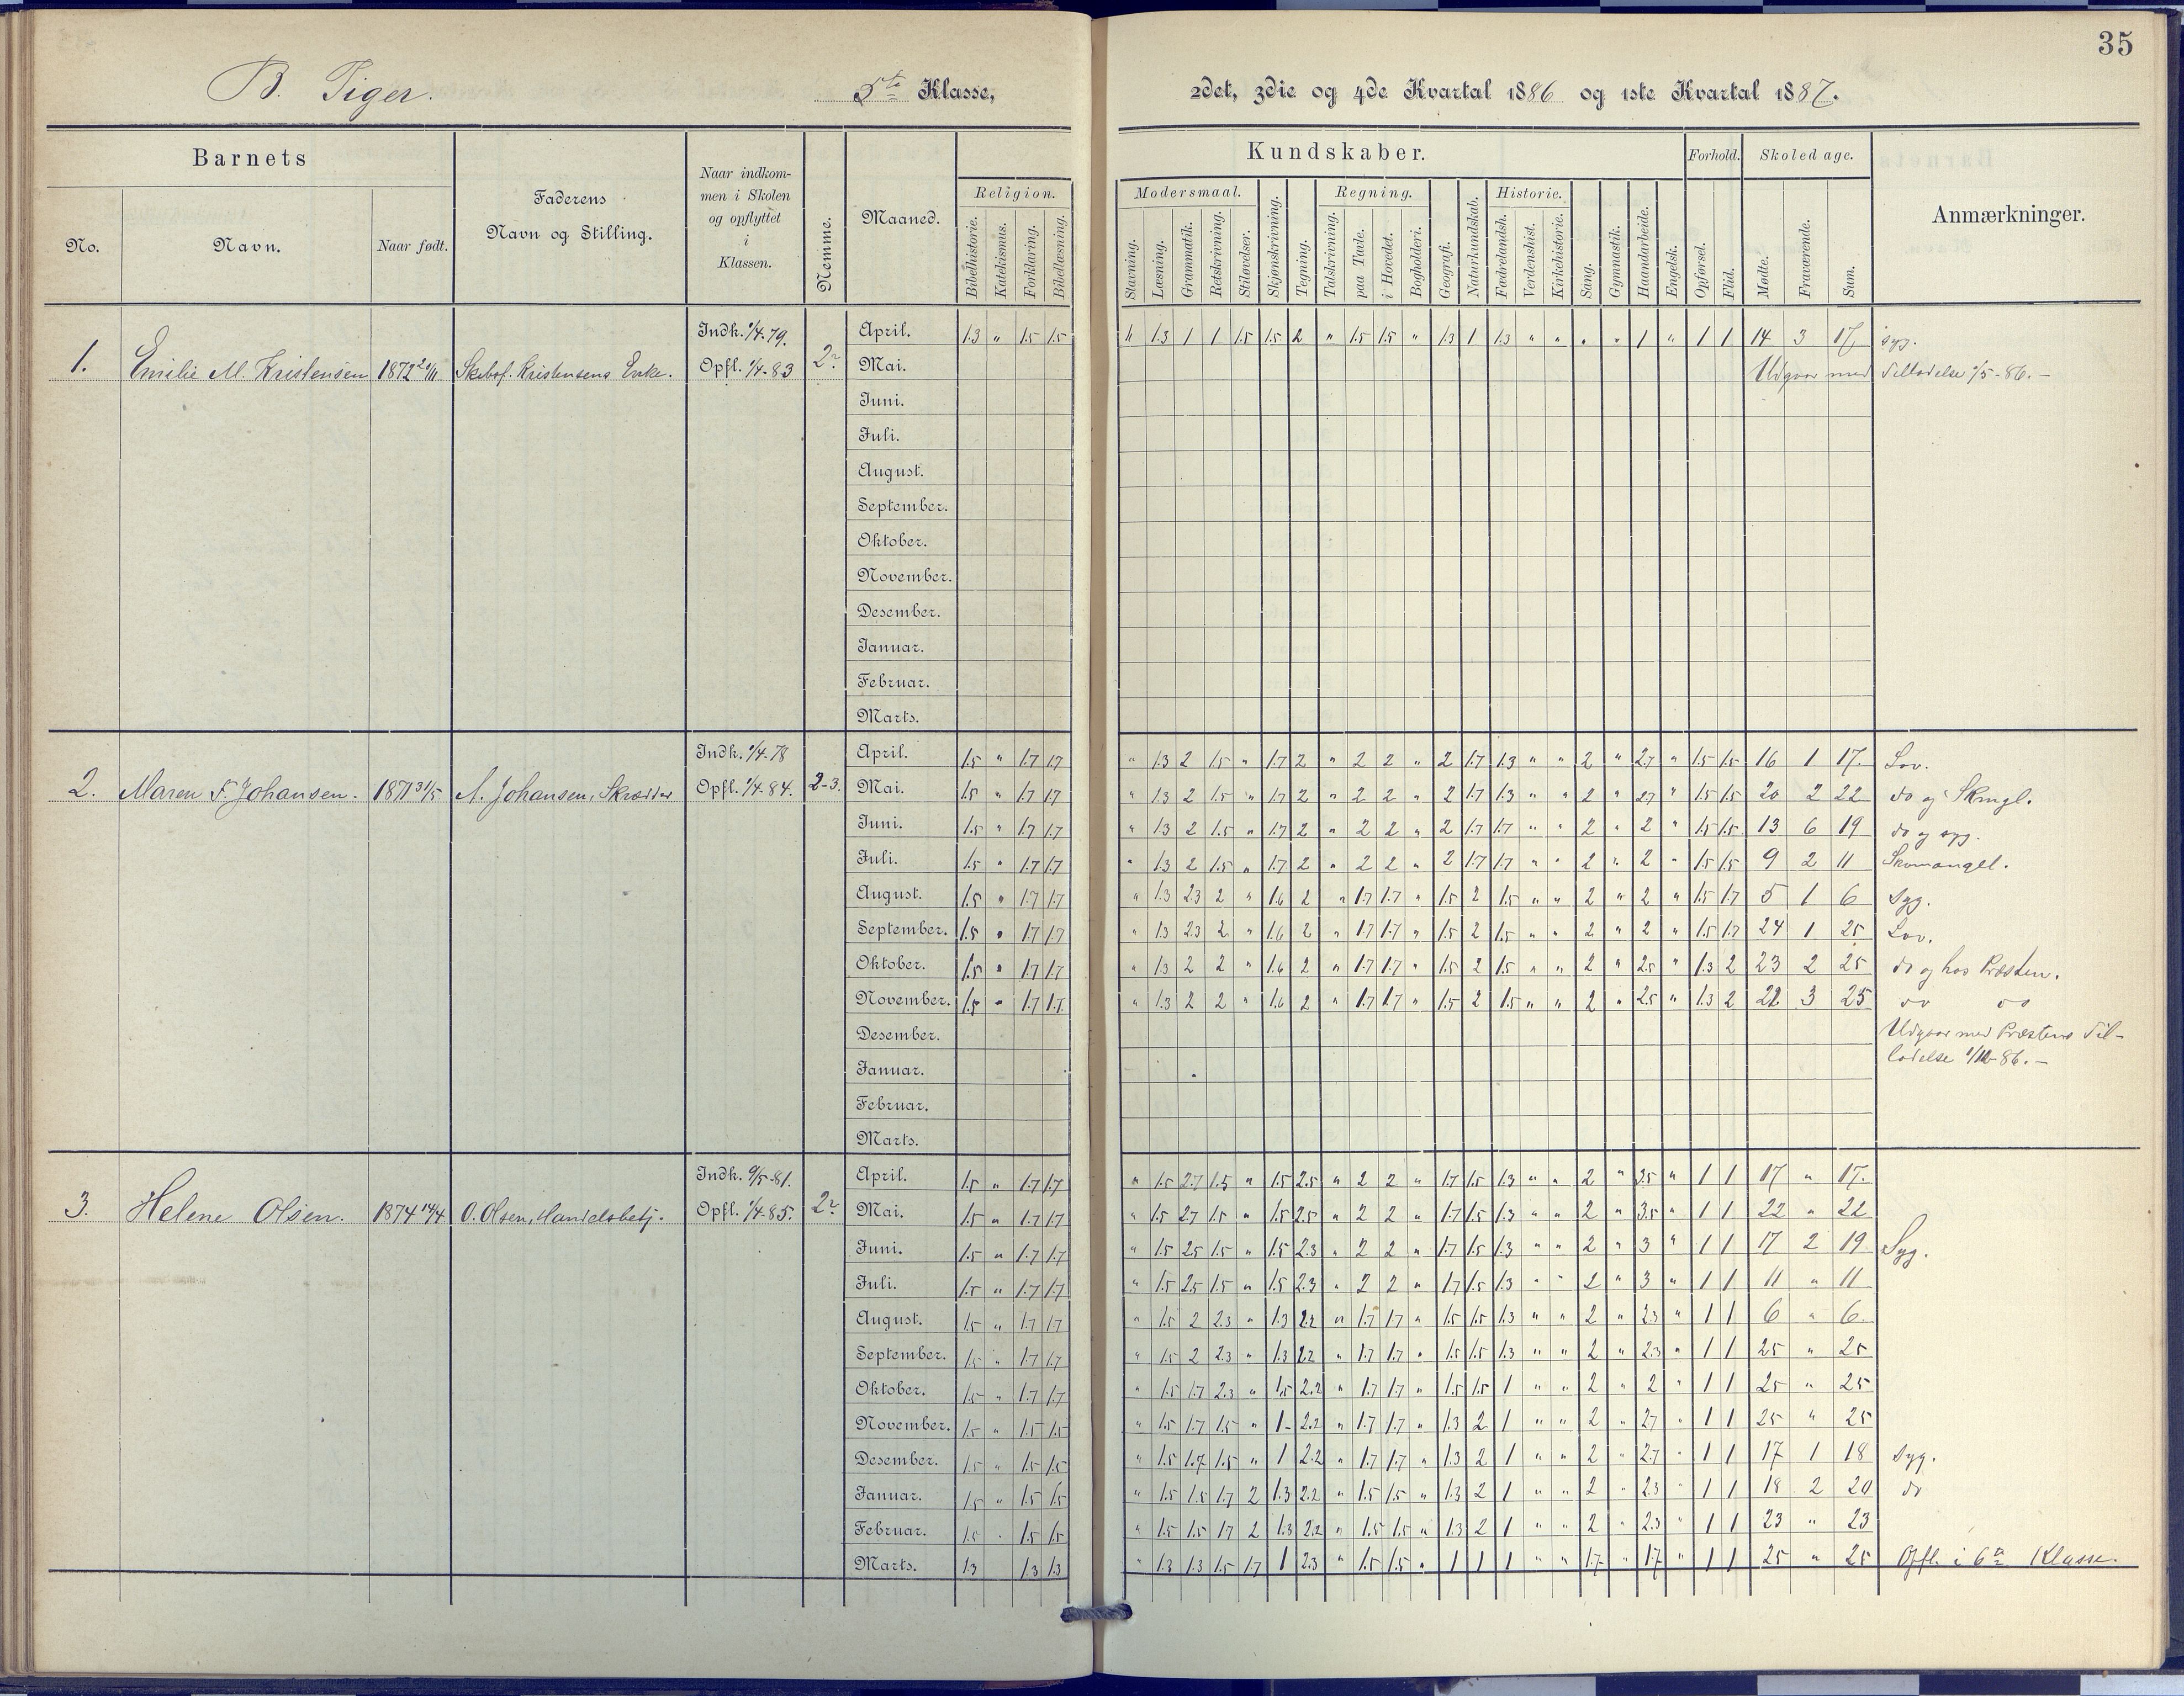 35
B. Piger.
5te Klasse,
2det, 3die og 4de Kvartal 1886 og 1ste Kvartal 1887.
Barnets
No.
Navn.
Naar født.
Faderens
Navn og Stilling.
Naar indkom-
men i Skolen
og opflyttet
i
Klassen.
Nemme.
Maaned.
Religion.
Bibelhistorie.
Katekismus.
Forklaring.
Bibellæsning.
Kundskaber.
Modersmaal.
Stavning.
Læsning.
Grammatik.
Retskrivning.
Stiløvelser.
Skjønskrivning.
Tegning.
Regning.
Talskrivning.
paa Tavle.
i Hovedet.
Bogholderi.
Geografi.
Naturkundskab.
Historie.
Fædrelandsh.
Verdenshist.
Kirkehistorie.
Sang.
Gymnastik.
Haandarbeide.
Engelsk.
Forhold.
Opførsel.
Flid.
Skoledage.
Mødte.
Fraværende.
Sum.
Anmærkninger.
1. Emilie M. Kristensen 1872 Skibsf. Kristensens Enke.
Indk. 1/4-79.
Opfl. 1/4-83
April. 1.3 " 1.5 1.5 " 1.3 1 1 1.5 1.5 2 " 1.5 1.5 " 1.3 1 1.3 " " " " 1 " 1 1 14 3 17 syg.
Mai. Udgaar med Tilladelse 1/5-86.-
Juni.
Juli.
August.
September.
Oktober.
November.
Desember.
Januar.
Februar.
Marts.
2. Maren F. Johansen. 1871 31/5 A. Johansen, Skrædder
Indk. 1/4-78
Opfl. 1/4-84. 2-3.
April. 1.5 " 1.7 1.7 " 1.3 2 1.5 " 1.7 2 " 2 2 " 2 1.7 1.3 " " 2 " 2.7 " 1.5 1.5 16 1 17. Lov.
Mai. 1.5 " 1.7 1.7 " 1.3 2 1.5 " 1.7 2 " 2 2 " 2 1.7 1.3 " " 2 " 2.7 " 1.5 1.5 20 2 22 do og Skmgl.
Juni. 1.5 " 1.7 1.7 " 1.3 2 1.5 " 1.7 2 " 2 2 " 2 1.7 1.7 " " 2 " 2 " 1.5 1.5 13 6 19 do og syg.
Juli. 1.5 " 1.7 1.7 " 1.3 2 1.5 " 1.7 2 " 2 2 " 2 1.7 1.7 " " 2 " 2 " 1.5 1.5 9 2 11 Skomangel.
August. 1.5 " 1.7 1.7 " 1.3 2.3 2 " 1.6 2 " 1.7 1.7 " 1.5 2 1.5 " " 2 " 2 " 1.5 1.7 5 1 6 Syg.
September. 1.5 " 1.7 1.7 " 1.3 2.3 2 " 1.6 2 " 1.7 1.7 " 1.5 2 1.5 " " 2 " 2 " 1.5 1.7 24 1 25 Lov.
Oktober. 1.5 " 1.7 1.7 " 1.3 2 2 " 1.6 2 " 1.7 1.7 " 1.5 2 1.5 " " 2 " 2.5 " 1.3 2 23 2 25 do og hos Præsten.
November. 1.5 " 1.7 1.7. " 1.3 2 2 " 1.6 2 " 1.7 1.7 " 1.5 2 1.5 " " 2 " 2.5 " 1.3 2 22 3 25 do do
Desember. Udgaar med Præstens Til-
Januar. ladelse 1/12-86.-
Februar.
Marts.
3. Helene Olsen. 1874 14/4 O. Olsen, Handelsbetj.
Indk. 9/5-81.
Opfl. 1/4-85.
April. 1.5 " 1.7 1.7 " 1.5 2.7 1.5 " 1.5 2.5 " 2 2 " 1.7 1.5 1.3 " " 2 " 3.5 " 1 1 17 " 17.
Mai. 1.5 " 1.7 1.7 " 1.5 2.7 1.5 " 1.5 2.5 " 2 2 " 1.7 1.5 1.3 " " 2 " 3.5 " 1 1 22 " 22
Juni. 1.5 " 1.7 1.7 " 1.5 2.5 1.5 " 1.5 2.3 " 2 2 " 1.7 1.5 1.3 " " 2 " 3 " 1 1 17 2 19 Syg.
Juli. 1.5 " 1.7 1.7 " 1.5 2.5 1.5 " 1.5 2.3 " 2 2 " 1.7 1.5 1.3 " " 2 " 3 " 1 1 11 " 11
August. 1.5 " 1.7 1.7 " 1.5 2 2.3 " 1.3 2.2 " 1.7 1.7 " 1.5 1.5 1.3 " " 2 " 2.3 " 1 1 6 " 6.
September. 1.5 " 1.7 1.7 " 1.5 2 2.3 " 1.3 2.2 " 1.7 1.7 " 1.5 1.5 1.3 " " 2 " 2.3 " 1 1 25 " 25
Oktober. 1.5 " 1.7 1.7 " 1.5 1.7 2.3 " 1.5 2.2 " 1.7 1.7 " 1.5 1.5 1 " " 2 " 2 " 1 1 25 " 25
November. 1.5 " 1.5 1.5 " 1.5 1.7 1.5 " 1- 2.2 " 1.7 1.7 " 1.3 2 1 " " 2 " 2.7 " 1 1 25 " 25
Desember. 1.5 " 1.5 1.5 " 1.5 1.7 1.5 " 1 2.2 " 1.7 1.7 " 1.3 2 1 " " 2 " 2.7 " 1 1 17 1 18 syg.
Januar. 1.5 " 1.5 1.5 " 1.5 1.5 1.7 2 1.3 2.2 " 1.5 1.5 " 1.3 2 1 " " 2 " 2.3 " 1 1 18 2 20 do
Februar. 1.5 " 1.5 1.5 " 1.5 1.5 1.7 2 1.3 2.2 " 1.5 1.5 " 1.3 2 1 " " 2 " 2.3 " 1 1 23 " 23
Marts. 1.3 1.3 1.3 " 1.3 1.3 1.5 1.7 1 2.3 " 1.5 1.5 " 1 1 1 " " 1.7 " 1.7 " 1 1 25 " 25 Opfl. i 6te Klasse.